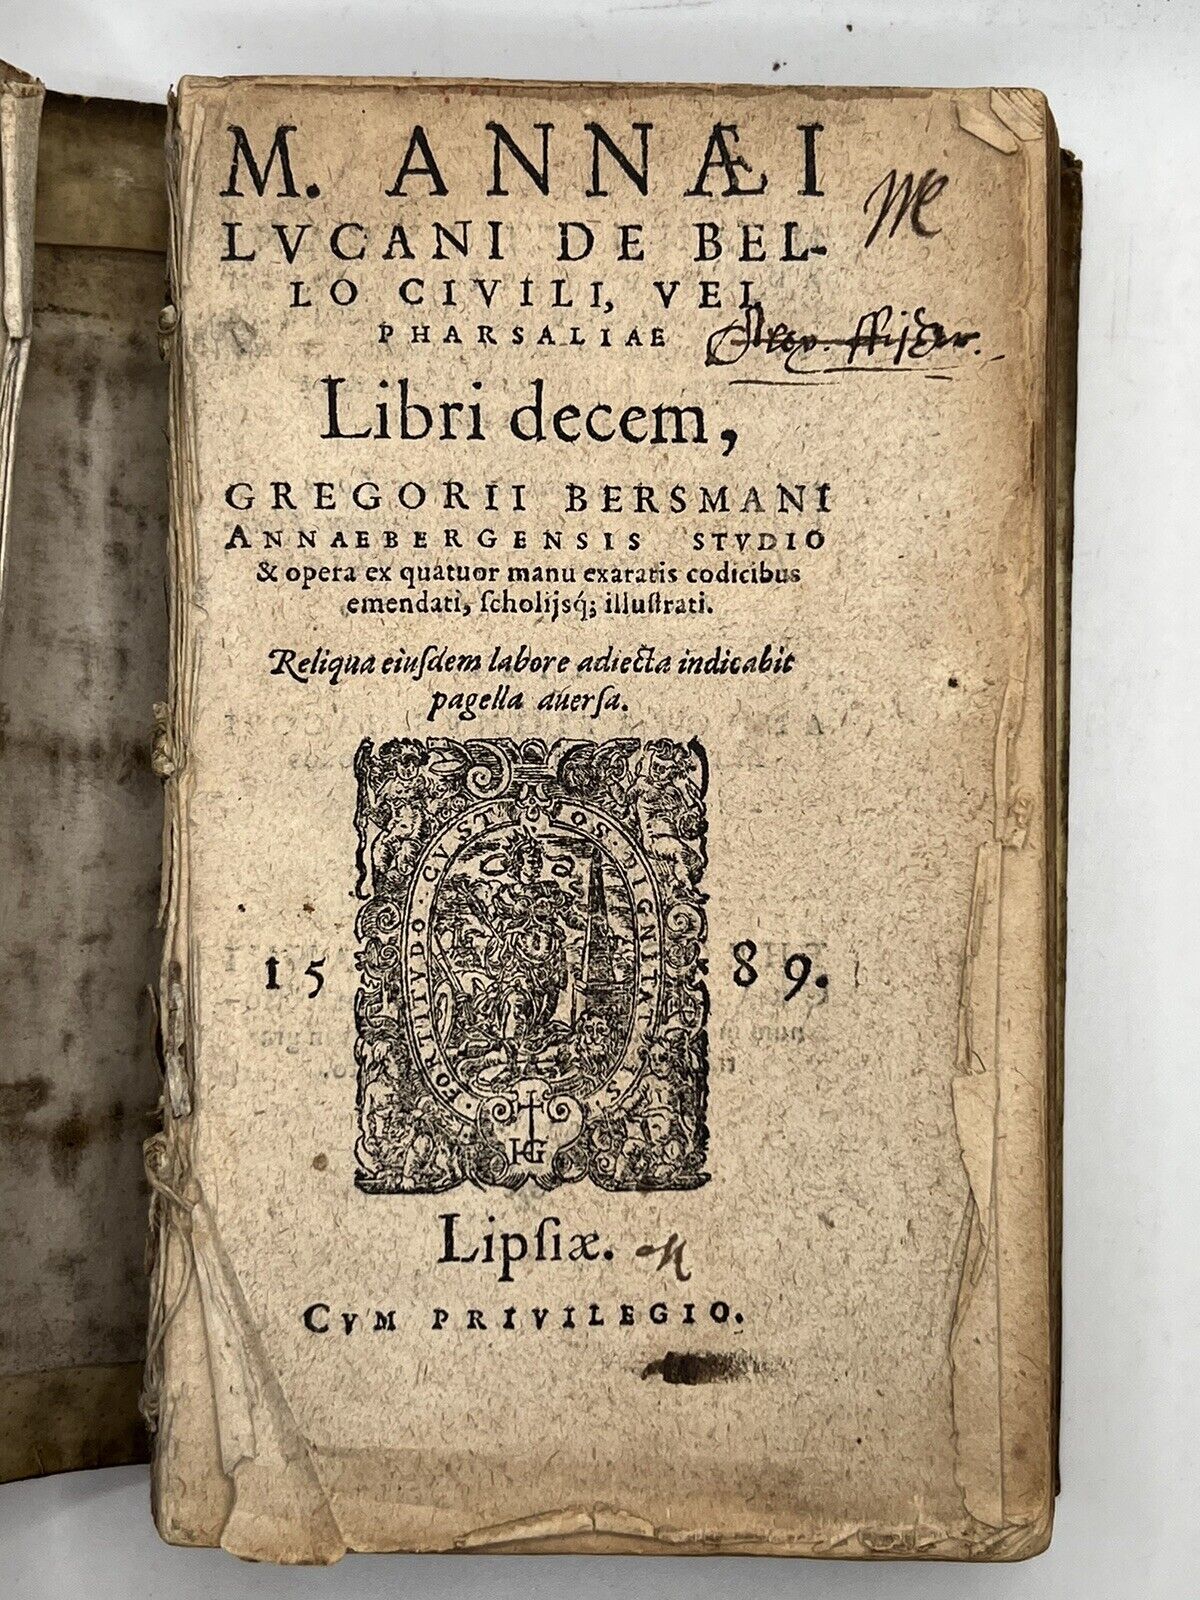 M. ANNÆI
LVCANI DE BEL-
LO CIVILI, VEL
PHARSALIAE
Libri decem,
GREGORII BERSMANI
ANNAEBERGENSIS STVDIO
& opera ex quatuor manu exaratis codicibus
emendati, ſcholijsq́; illuſtrati.
Reliqua eiuſdem labore adiecta indicabit
pagella averſa.
FORTITVDO · CVSTOS DIGNITATIS
15 89.
HG
Lipſiæ.
CVM PRIVILEGIO.